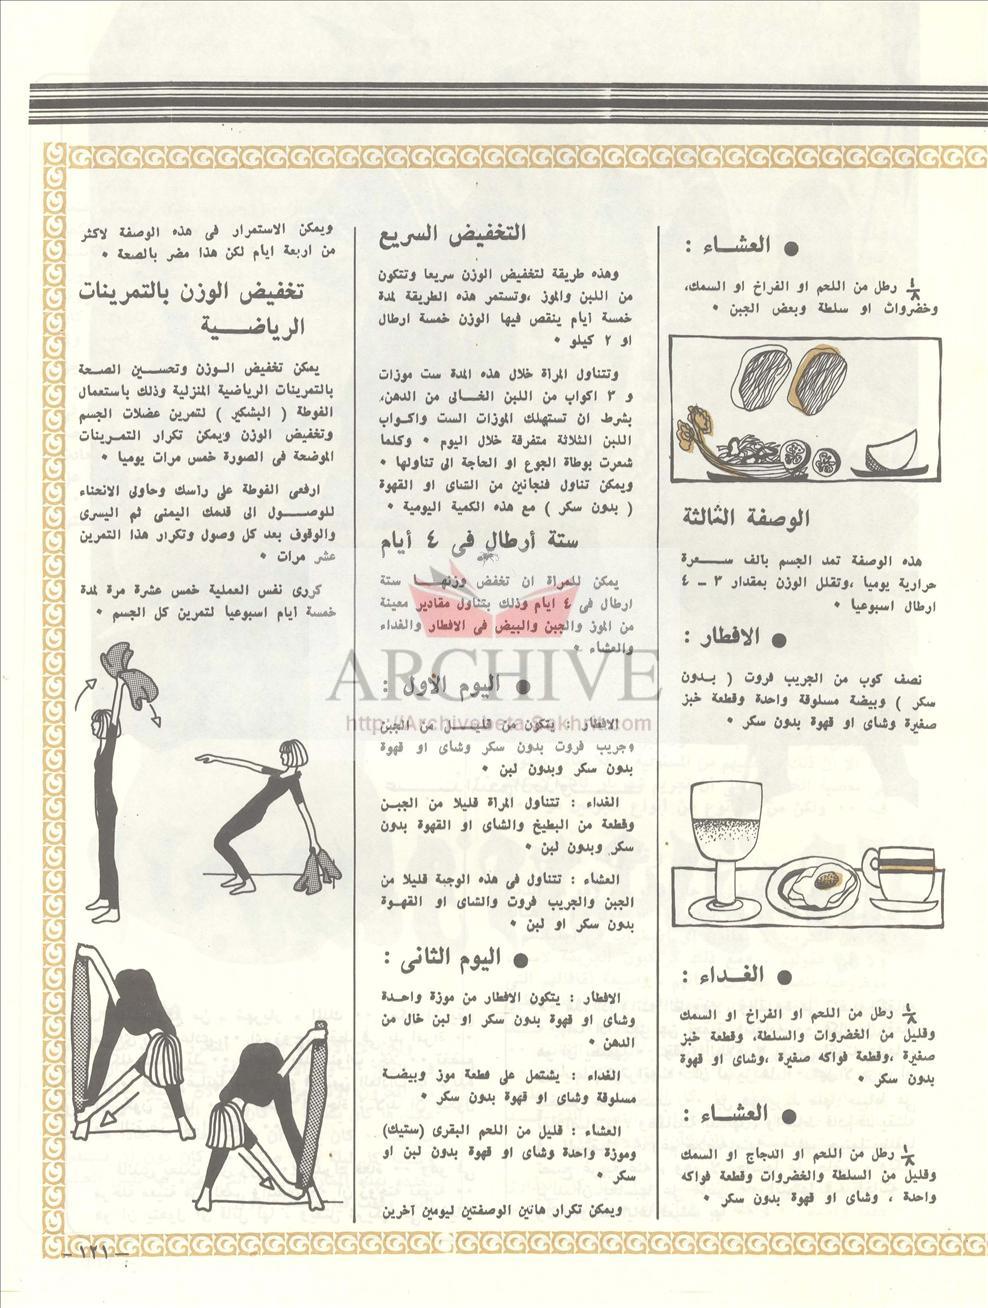 ● العشاء :
١/٨ رطل من اللحم او الفراخ او السمك،
وخضروات او سلطة وبعض الجبن •
الوصفة الثالثة
هذه الوصفة تمد الجسم بالف سعرة
حرارية يوميا ،وتقلل الوزن بمقدار ٣ ـ ٤
ارطال اسبوعيا •
● الافطار :
نصف كوب من الجريب فروت ( بدون
سكر ) وبيضة مسلوقة واحدة وقطعة خبز
صغيرة وشاى او قهوة بدون سكر •
● الغداء :
١/٨ رطل من اللحم او الفراخ او السمك
وقليل من الخضروات والسلطة، وقطعة خبز
صغيرة ،وقطعة فواكه صغيرة ،وشاى او قهوة
بدون سكر •
● العشاء :
١/٨ رطل من اللحم او الدجاج او السمك
وقليل من السلطة والخضروات وقطعة فواكه
واحدة ، وشاى او قهوة بدون سكر •
التخفيض السريع
وهذه طريقة لتخفيض الوزن سريعا وتتكون
من اللبن والموز ،وتستمر هذه الطريقة لمدة
خمسة أيام ينقص فيها الوزن خمسة ارطال
او ٢ كيلو •
وتتناول المرأة خلال هذه المدة ست موزات
و ٣ اكواب من اللبن الخالى من الدهن،
بشرط ان تستهلك الموزات الست واكواب
اللبن الثلاثة متفرقة خلال اليوم • وكلما
شعرت بوطأة الجوع او الحاجة الى تناولها •
ويمكن تناول فنجانين من الشاى او القهوة
( بدون سكر ) مع هذه الكمية اليومية •
ستة أرطال فى ٤ أيام
يمكن للمرأة ان تخفض وزنها ستة
ارطال فى ٤ ايام وذلك بتناول مقادير معينة
من الموز والجبن والبيض فى الافطار والغداء
والعشاء •
● اليوم الأول :
الافطار : يتكون من قليل من الجبن
وجريب فروت بدون سكر وشاى او قهوة
بدون سكر وبدون لبن •
الغداء : تتناول المرأة قليلا من الجبن
وقطعة من البطيخ والشاى او القهوة بدون
سكر وبدون لبن •
العشاء : تتناول فى هذه الوجبة قليلا من
الجبن والجريب فروت والشاى او القهوة
بدون سكر او لبن •
● اليوم الثانى :
الافطار : يتكون الافطار من موزة واحدة
وشاى او قهوة بدون سكر او لبن خال من
الدهن •
الغداء : يشتمل على قطعة موز وبيضة
مسلوقة وشاى او قهوة بدون سكر •
العشاء : قليل من اللحم البقرى (ستيك)
وموزة واحدة وشاى او قهوة بدون لبن او
سكر •
ويمكن تكرار هاتين الوصفتين ليومين آخرين
ويمكن الاستمرار فى هذه الوصفة لاكثر
من اربعة ايام لكن هذا مضر بالصحة •
تخفيض الوزن بالتمرينات
الرياضية
يمكن تخفيض الوزن وتحسين الصحة
بالتمرينات الرياضية المنزلية وذلك باستعمال
الفوطة ( البشكير ) لتمرين عضلات الجسم
وتخفيض الوزن ويمكن تكرار التمرينات
الموضحة فى الصورة خمس مرات يوميا •
ارفعى الفوطة على رأسك وحاولى الانحناء
للوصول الى قدمك اليمنى ثم اليسرى
والوقوف بعد كل وصول وتكرار هذا التمرين
عشر مرات •
كررى نفس العملية خمس عشرة مرة لمدة
خمسة ايام اسبوعيا لتمرين كل الجسم •
ARCHIVE
http://Archivebeta.Sakhrit.com
ـ ١٢١ ـ